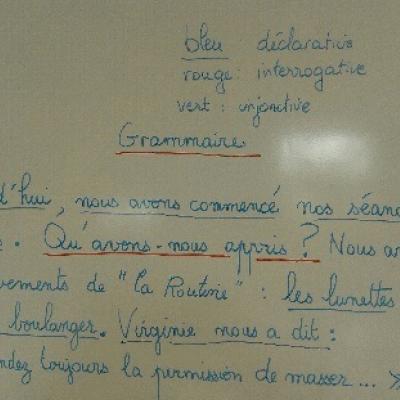 bleu déclarative
rouge: interrogative
vert: injonctive
Grammaire
d'hui, nous avons commencé nos séan
. Qu'avons-nous appris? Nous a
vements de "La Routine" : les lunettes
boulanger. Virginie nous a dit:
ndez toujours la permission de masser... »